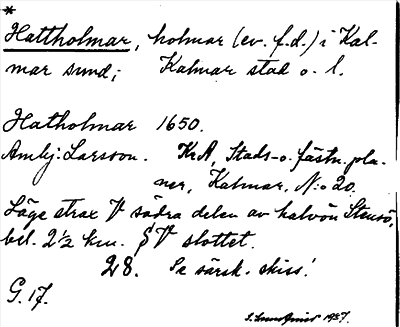 *
Hattholmar, holmar (ev. f.d.) i Kal-
mar sund; Kalmar stad o. l.
Hatholmar 1650.
Ambj. Larsson. KrA, Stads- o. fästn. pla-
ner, Kalmar, N:o 20.
Läge strax V södra delen av halvön Stensö,
bel. 2 1/2 km. SV slottet.
28. Se särsk. skiss!
G. 17.
1957.